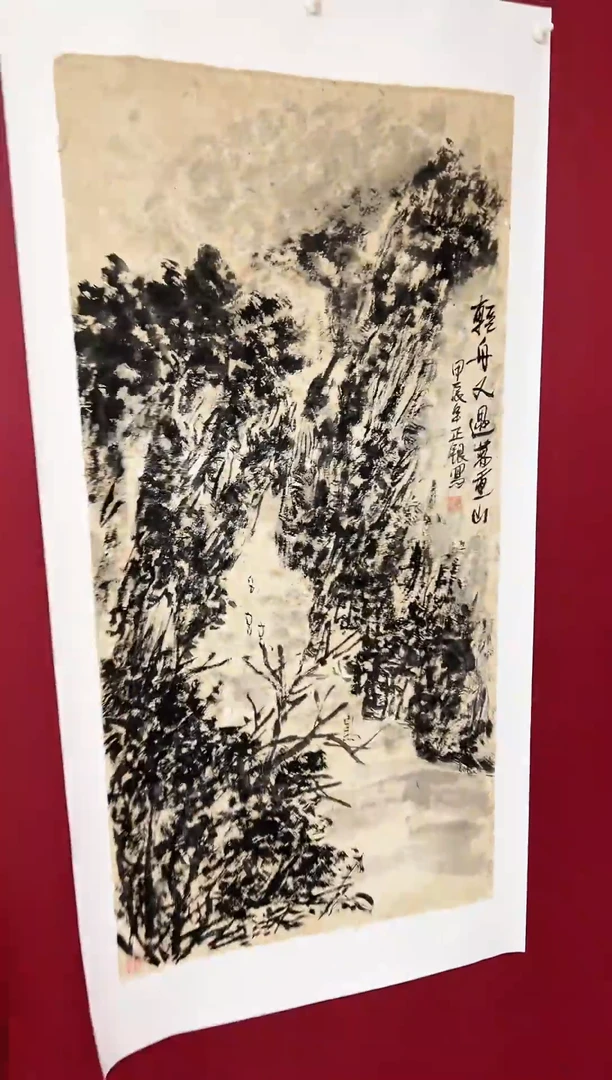 輕舟又過萬重山
甲辰年正銀寫